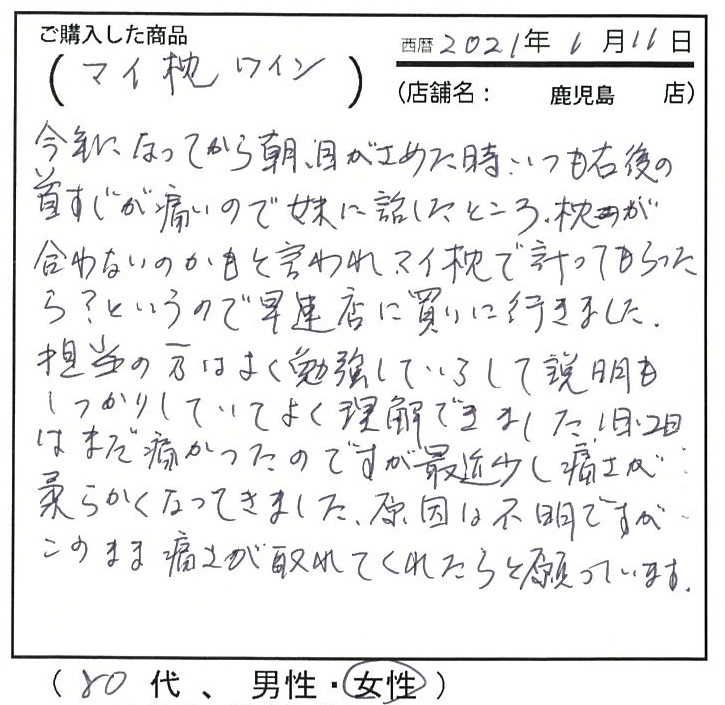 ご購入した商品
(マイ枕 ワイン)
西暦 2021年 1月11日
(店舗名： 鹿児島 店)
今年になってから朝、目がさめた時、いつも右後の
首すじが痛いので妹に話したところ、枕が
合わないのかもと言われマイ枕で計ってもらった
ら？というので早速店に買いに行きました.
担当の方はよく勉強しているして説明も
しっかりしていてよく理解できました 1日、2日
はまだ痛かったのですが最近少し痛さが
柔らかくなってきました、原因は不明ですが
このまま痛さが取れてくれたらと願っています.
(80代、男性・女性)